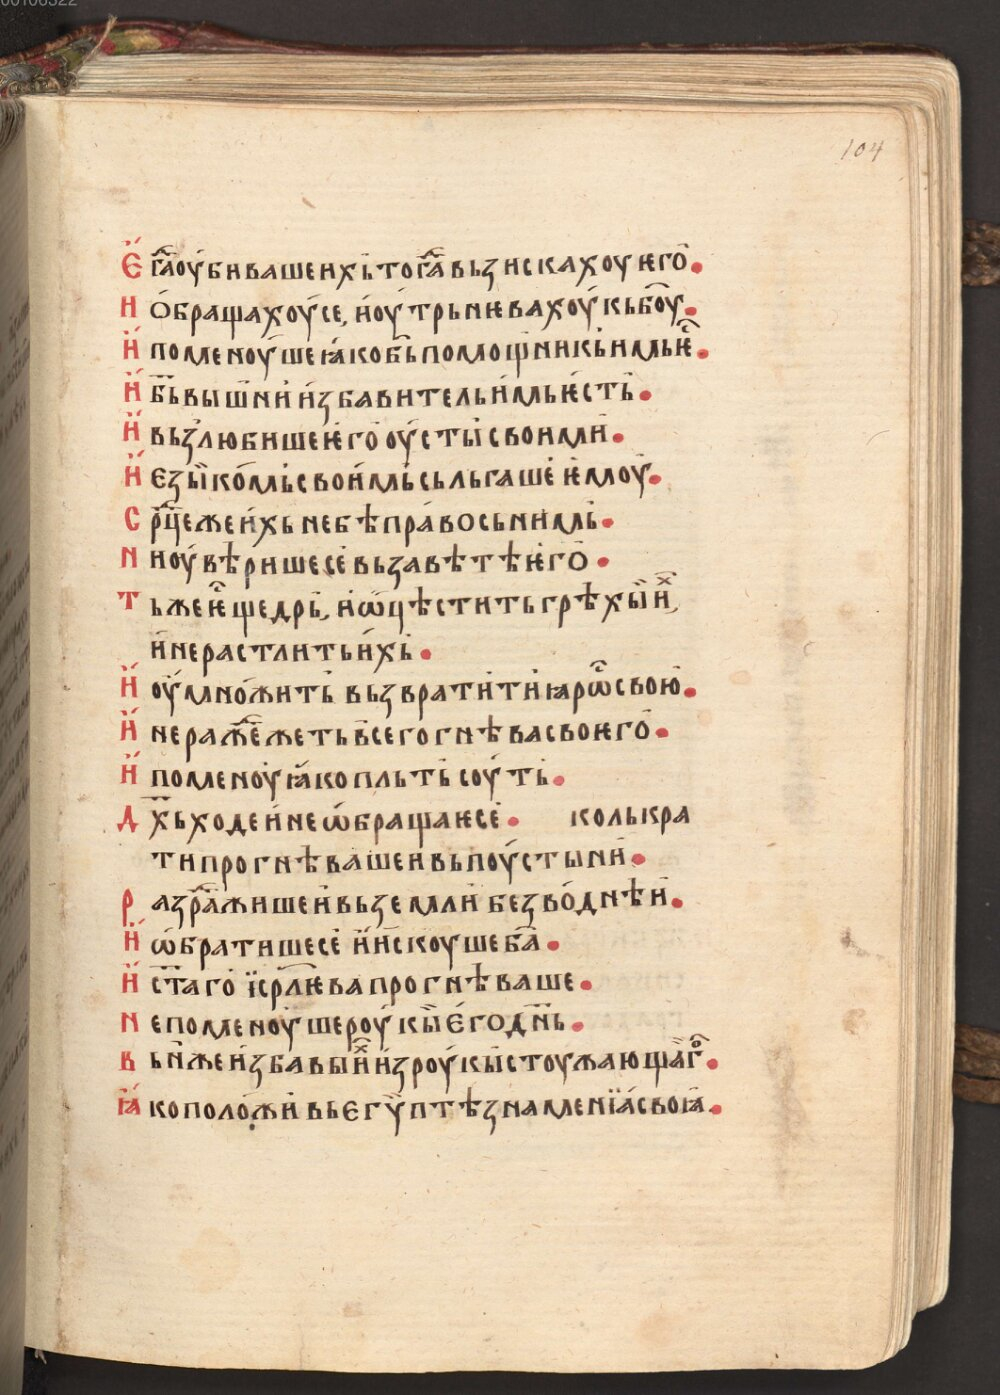 104
Ег҇даоубивашеихьтог҇давьзискахоуѥго.
Иѡбращахоусе, иоутрьнѥвахоукьбоу҇.
Ипоменоушеꙗкобь҇помощникьимьѥ҇.
Ибь҇вышнїиизбавительимьѥсть.
Ивьзлюбишеѥгооустысвоими.
Иезыкомьсвоимьсьльгашеѥмоу.
Ср҇цежеихьнебѣправосьнимь.
Ниоувѣришесевьзавѣтѣѥго.
Тьжеѥ҇щедрь, иѡцѣститьгрѣхыих҇,
инерастлитьихь.
Иоумножить вьзвратитиꙗрѡ҇свою.
Инеражежетьвсегогнѣвасвоѥго.
Ипоменоуꙗкопльтьсоуть.
Дх҇ьходеинеѡбращаѥсе. колькра
типрогнѣвашеивьпоустыни.
Разр҇ажишеивьземли безводнѣи.
Иѡбратишесе иискоушеба҇.
Ист҇агоїср҇лѥвапрогнѣваше.
Непоменоушероукыѥгодн҇ь.
Вьньжеизбавыих҇изроукыстоужающаг҇о.
Ꙗкоположивьегѵптѣзнаменїасвоꙗ.